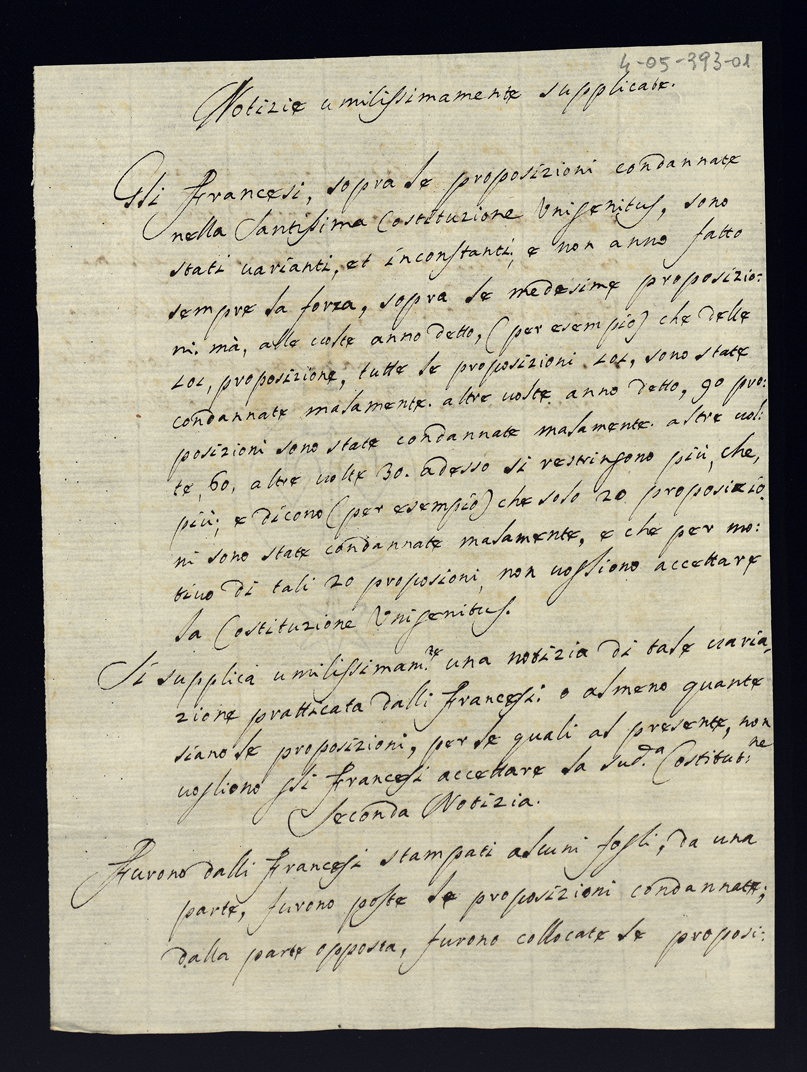 4-05-393-01
Notizie umilissimamente supplicate.
Gli Francesi, sopra le proposizioni condannate
nella Santissima Costituzione Unigenitus, sono
stati varianti, et inconstanti, e non anno fatto
sempre la forza, sopra le medesime proposizio:
ni. mà, alle volte anno detto, (per esempio) che delle
101, proposizione, tutte le proposizioni 101, sono state
condannate malamente. altre volte anno detto, 90 pro:
posizioni sono state condannate malamente. altre vol:
te, 60. altre volte 30. adesso si restringono più, che,
più; e dicono (per esempio) che solo 20 proposizio:
ni sono state condannate malamente, e che per mo:
tivo di tali 20 proposioni, non vogliono accettare
la Costituzione Unigenitus.
Si supplica umilissimam.te una notizia di tale varia,
zione pratticata dalli Francesi. o almeno quante
siano le proposizioni, per le quali al presente, non
vogliono gli Francesi accettare la sud.a Costitut:ne
Seconda Notizia.
Furono dalli Francesi stampati alcuni fogli, da una
parte, furono poste le proposizioni condannate;
dalla parte opposta, furono collocate le proposi: